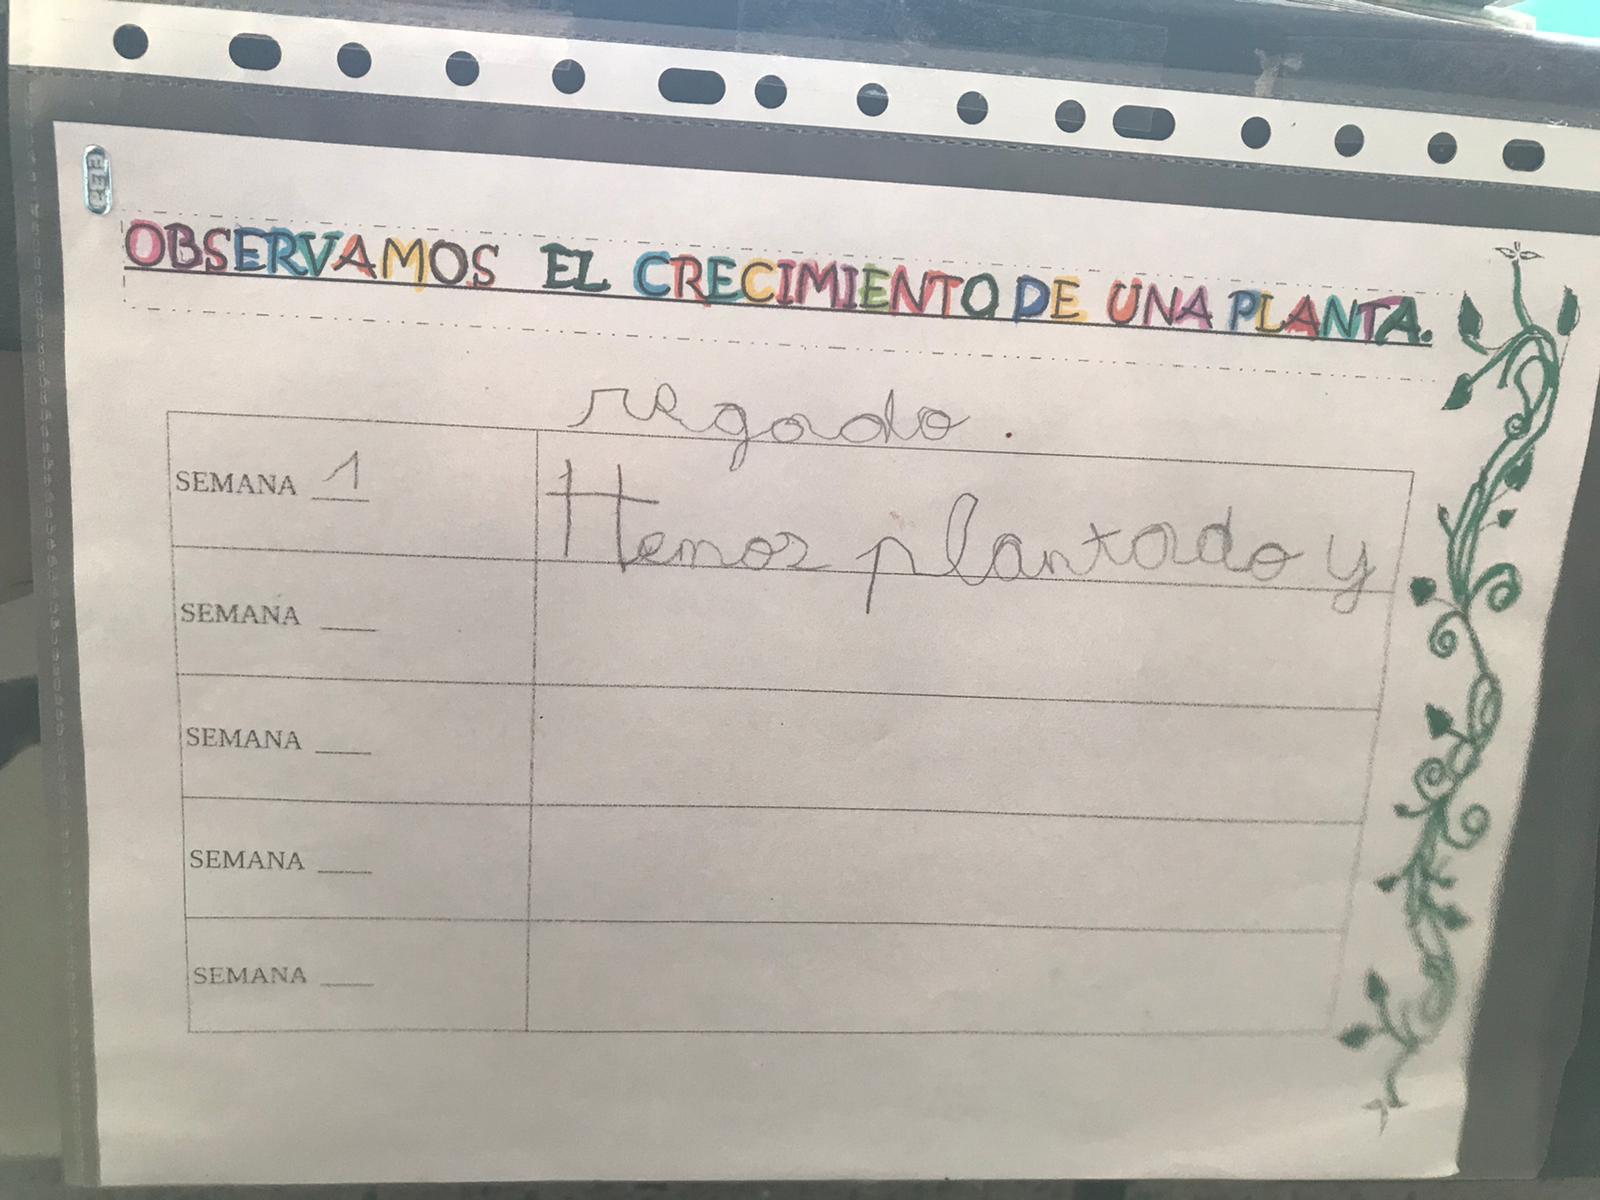 OBSERVAMOS EL CRECIMIENTO DE UNA PLANTA.
regado.
SEMANA 1
Hemos plantado y
SEMANA ___
SEMANA ___
SEMANA ___
SEMANA ___